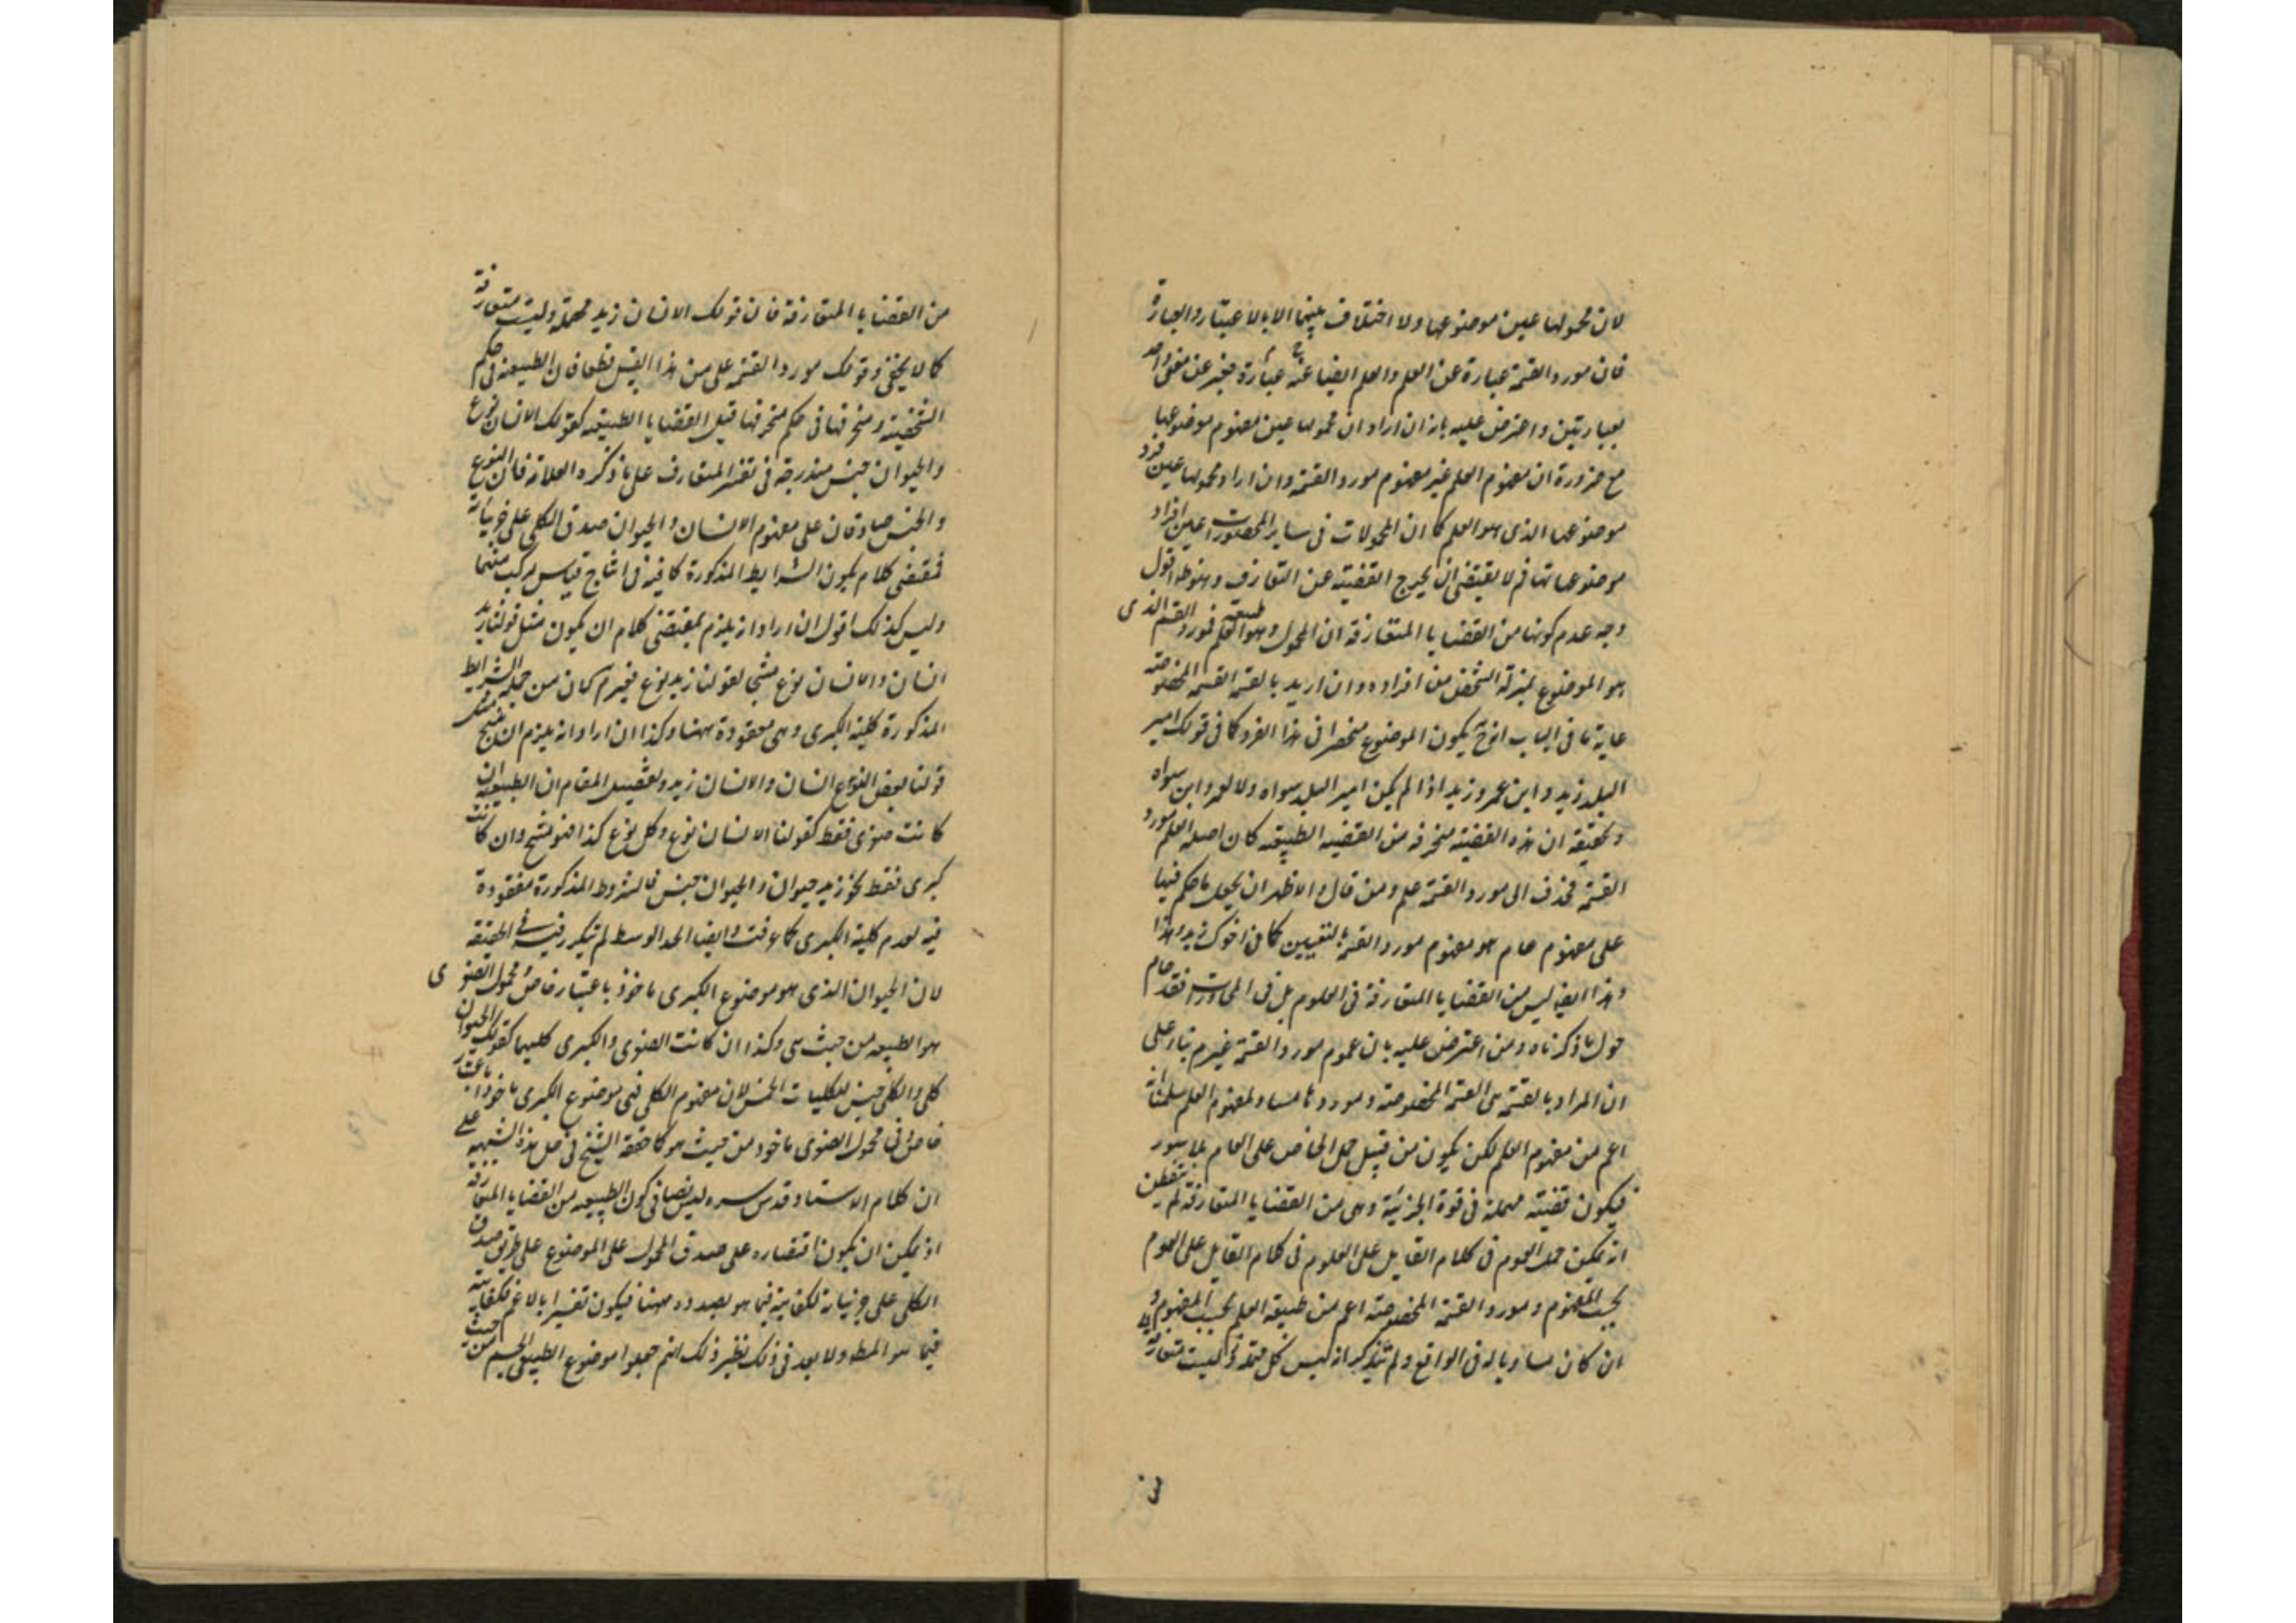 لان محمولها عين موضوعها ولا اختلاف بينهما الا بالاعتبار والعبارة
فان مورد القسمة عبارة عن العلم والعلم ايضا عبارة عنه فعبر عن معنى واحد
بعبارتين واعترض عليه بانه ان اراد ان محمولها عين مفهوم موضوعها
مع ضرورة ان مفهوم العلم غير مفهوم مورد القسمة وان اراد محمولها عين فرد
موضوعها الذى هو العلم كما ان المحمولات فى ساير المحصورات عين افراد
موضوعاتها فم لا يقتضى ان يخرج القضية عن التعارف وهو ظ اقول
وجه عدم كونها من القضايا المتعارفة ان المحمول وهو طبيعة العلم فمورد القسم الذى
هو الموضوع بمنزلة الشخص من افراده وان اريد بالقسمة القسمة المخصوصة
غاية ما فى الباب انه ح يكون الموضوع منحصرا فى هذا الفرد كما فى قولك امير
البلد زيد وابن عمرو زيد اذا لم يكن امير البلد سواه ولا لعمرو ابن سواه
وتحقيقه ان هذه القضية منحرفة من القضية الطبيعية كان اصله العلم مورد
القسمة فحذف الى مورد القسمة علم ومن قال والاظهر ان يجعل ما حكم فيها
على مفهوم عام هو مفهوم مورد القسمة بالتعيين كما فى اخوك زيد وهذا
وهذا ايضا ليس من القضايا المتعارفة فى العلوم بل فى المحاورات فقد حام
حول ما ذكرناه ومن اعترض عليه بان عموم مورد القسمة غير م بناء على
ان المراد بالقسمة هى القسمة المخصوصة وموردها مساو لمفهوم العلم سلمنا انه
اعم من مفهوم العلم لكن يكون من قبيل حمل الخاص على العام بلا سور
فيكون قضية مهملة فى قوة الجزئية وهى من القضايا المتعارفة لم يتفطن
انه يمكن حمل العموم فى كلام القايل على العلوم فى كلام القايل على العموم
بحسب المفهوم ومورد القسمة المخصوصة اعم من طبيعة العلم بحسب المفهوم و
ان كان مساويا له فى الواقع ولم يتذكر انه ليس كل مهملة وليست متعارفة
من القضايا المتعارفة فان قولك الانسان زيد مهملة وليست متعارفة
كما لا يخفى وقولك مورد القسمة علم من هذا القبيل قطعا فان الطبيعة فى حكم
الشخصية ومنحرفها فى حكم منحرفها قيل القضايا الطبيعية كقولك الانسان نوع
والحيوان جنس مندرجة فى تفسير المتعارف على ما ذكره العلامة فان النوع
والجنس صادقان على مفهوم الانسان والحيوان صدق الكلى على جزئياته
فمقتضى كلامه يكون الشرايط المذكورة كافية فى انتاج قياس مركب منهما
وليس كذلك اقول ان اراد انه يلزم بمقتضى كلامه ان يكون مثل قولنا زيد
انسان والانسان نوع منتجا لقولنا زيد نوع فغير م كان من جملة الشرايط
المذكورة كلية الكبرى وهى مفقودة ههنا وكذا ان اراد انه يلزم ان ينتج
قولنا بعض النوع انسان والانسان زيد وتفصيل المقام ان الطبيعية ان
كانت صغرى فقط كقولنا الانسان نوع وكل نوع كذا فهو منتج وان كانت
كبرى فقط نحو زيد حيوان والحيوان جنس فالشروط المذكورة مفقودة
فيه لعدم كلية الكبرى كما عرفت وايضا الحد الوسط لم يتكرر فيه فى الحقيقة
لان الحيوان الذى هو موضوع الكبرى ماخوذ باعتبار خاص ومحمول الصغرى
هو الطبيعة من حيث هى وكذا ان كانت الصغرى والكبرى كليهما كقولك الحيوان
كلى والكلى جنس للكليات الخمس لان مفهوم الكلى فى موضوع الكبرى ماخوذ باعتبار
خاص وفى محمول الصغرى ماخوذ من حيث هو كما حققه الشيخ فى حل هذه الشبهة على
ان كلام الاستاد قدس سره ليس نصا فى كون الطبيعية من القضايا المتعارفة
اذ يمكن ان يكون اقتصاره على صدق المحمول على الموضوع على طريق صدق
الكلى على جزئياته لكفايته فيما هو بصدده ههنا فيكون تفسيرا بالاعم لكفايته
فيما هو المط ولا بعد فى ذلك نظير ذلك انهم جعلوا موضوع الطبيعى الجسم من حيث